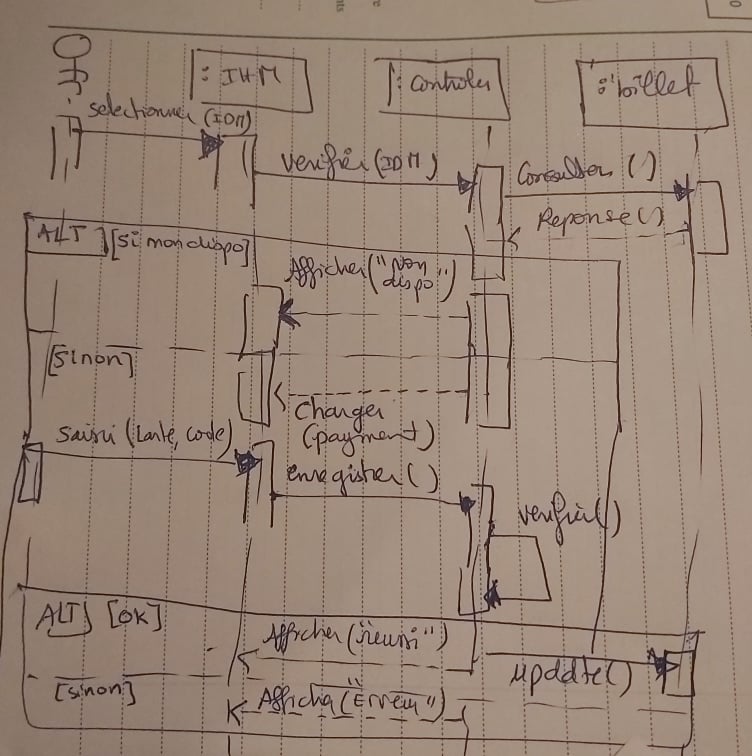 : IHM
: Controler
: billet
selectionner (IDM)
verifier (IDM)
Consulter ()
Reponse()
ALT [si non dispo]
Afficher("Non
dispo")
[sinon]
Changer
(payment)
Saisi (Carte, code)
enregister()
verifier()
ALT [OK]
Afficher("reussi")
update()
[sinon]
Afficher("Erreur")